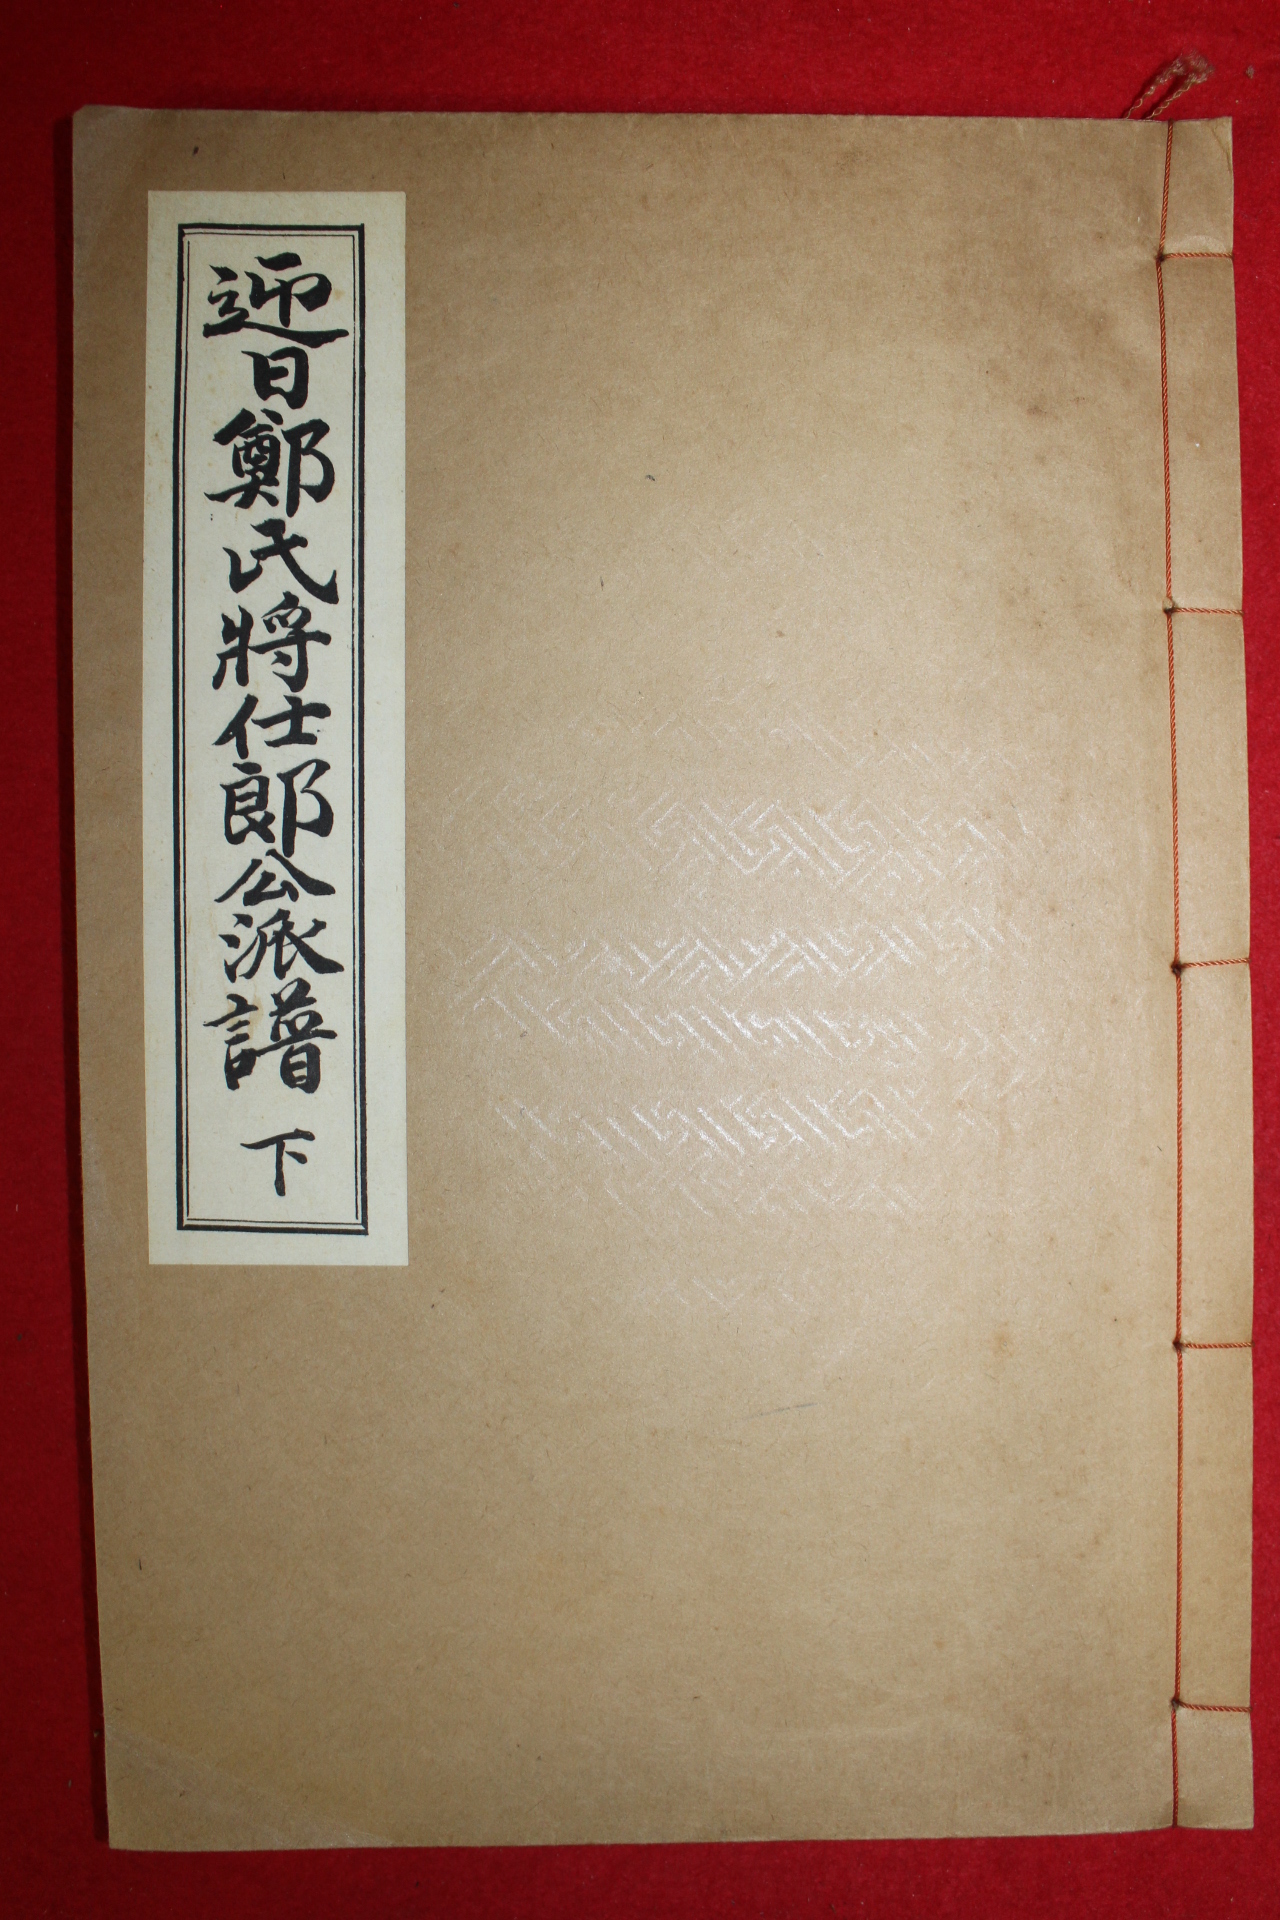 迎日鄭氏將仕郞公派譜 下